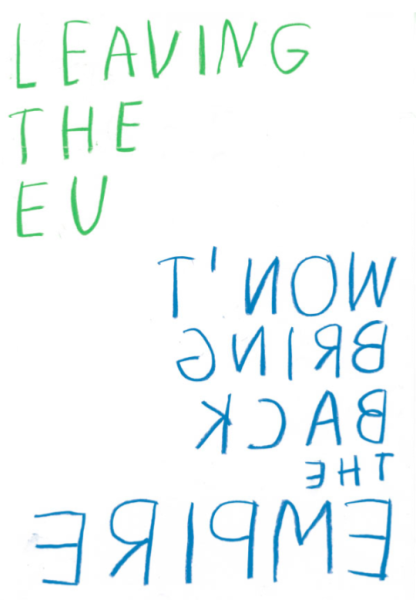 LEAVING
THE
EU
WON'T
BRING
BACK
THE
EMPIRE